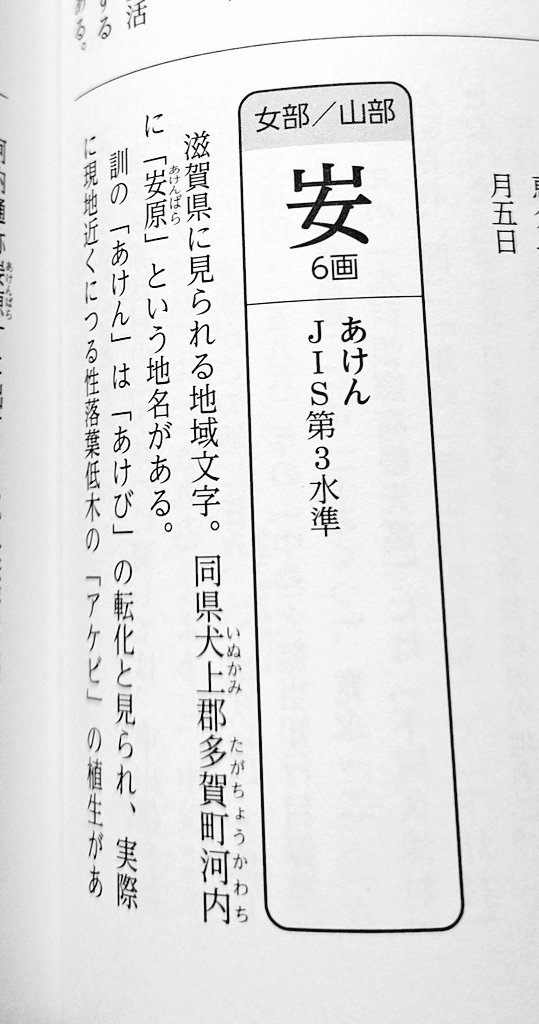 月五日
女部／山部
𡚴
6画
あけん
JIS第3水準
いぬかみ たがちょうかわち
滋賀県に見られる地域文字。同県犬上郡多賀町河内
あけんばら
に「𡚴原」という地名がある。
訓の「あけん」は「あけび」の転化と見られ、実際
に現地近くにつる性落葉低木の「アケビ」の植生があ
活
する
ある。
あけんばら